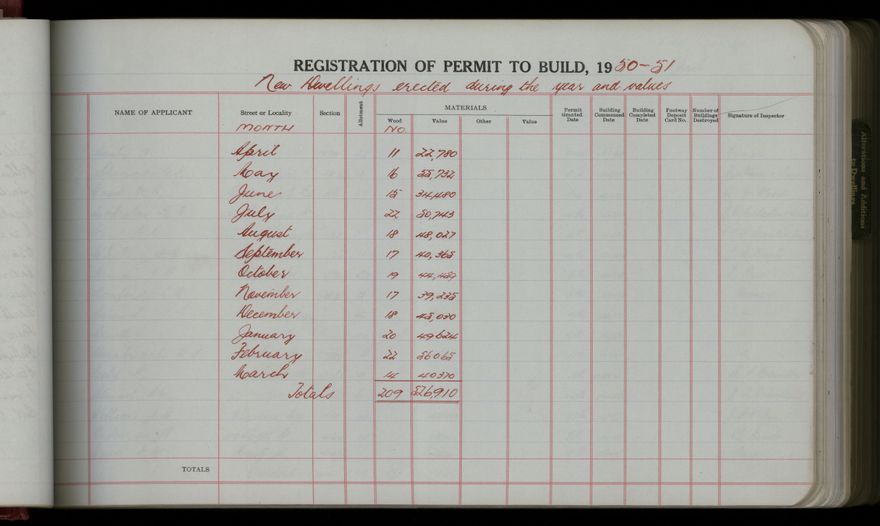 REGISTRATION OF PERMIT TO BUILD, 1950-51
New Dwellings erected during the year and values
NAME OF APPLICANT Street or Locality Section Allotment MATERIALS Permit Granted Date Building Commenced Date Building Completed Date Footway Deposit Card No. Number of Buildings Destroyed Signature of Inspector
Wood Value Other Value
MONTH NO.
April 11 22,780
May 16 35,732
June 15 34,480
July 22 50,743
August 18 48,027
September 17 40,365
October 19
November 17 39,235
December 18 45,030
January 20 49624
February 22 56065
March 14 40370
Totals 209 526,910
TOTALS
Alterations and Additions to Dwellings